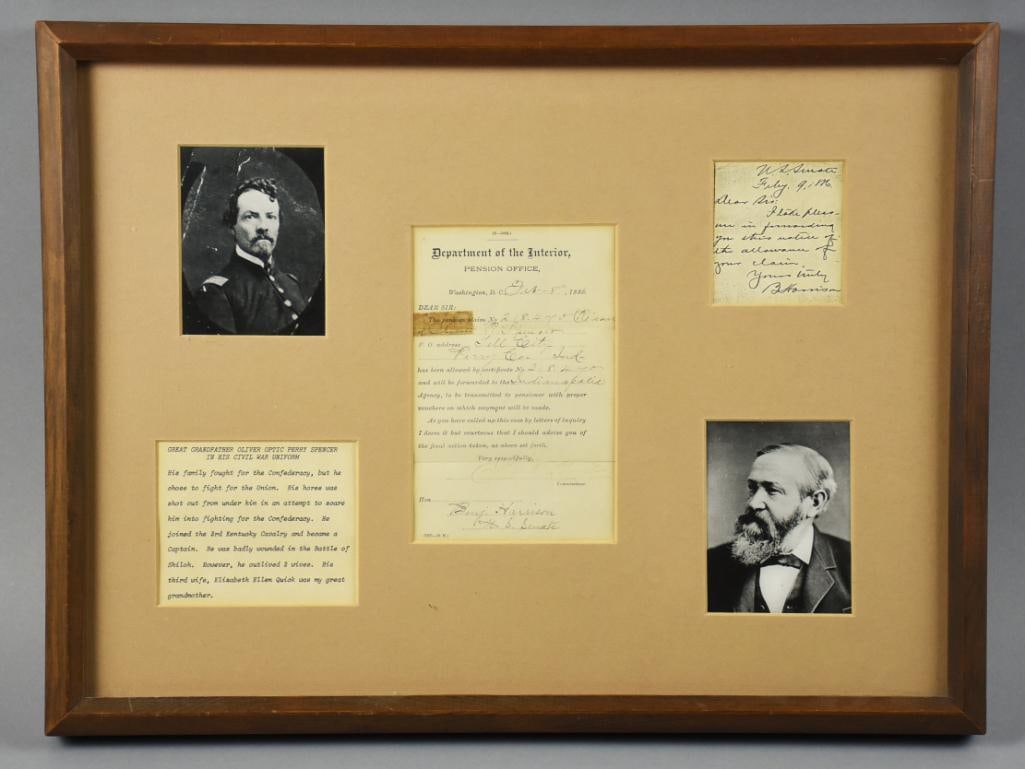 GREAT GRANDFATHER OLIVER OPTIC PERRY SPENCER
IN HIS CIVIL WAR UNIFORM
His family fought for the Confederacy, but he
chose to fight for the Union. His horse was
shot out from under him in an attempt to scare
him into fighting for the Confederacy. He
joined the 3rd Kentucky Cavalry and became a
Captain. He was badly wounded in the Battle of
Shiloh. However, he outlived 2 wives. His
third wife, Elisabeth Ellen Quick was my great
grandmother.
Department of the Interior,
PENSION OFFICE,
Washington, D. C. Feb 8, 1886
DEAR SIR:
The pension claim No 218.470
P. Spencer
P. O. address Tell City
Perry Co. Ind
has been allowed by certificate No 218.470
and will be forwarded to the Indianapolis
Agency, to be transmitted to pensioner with proper
vouchers on which payment will be made.
As you have called up this case by letters of inquiry
I deem it but courteous that I should advise you of
the final action taken, as above set forth.
Very respectfully,
Commissioner.
Hon
Benj Harrison
U.S. Senate
U.S. Senate
Feby. 9,
Dear Sir:
I take pleas-
ure in forwarding
you this notice of
the allowance of
your claim.
Yours truly
B Harrison